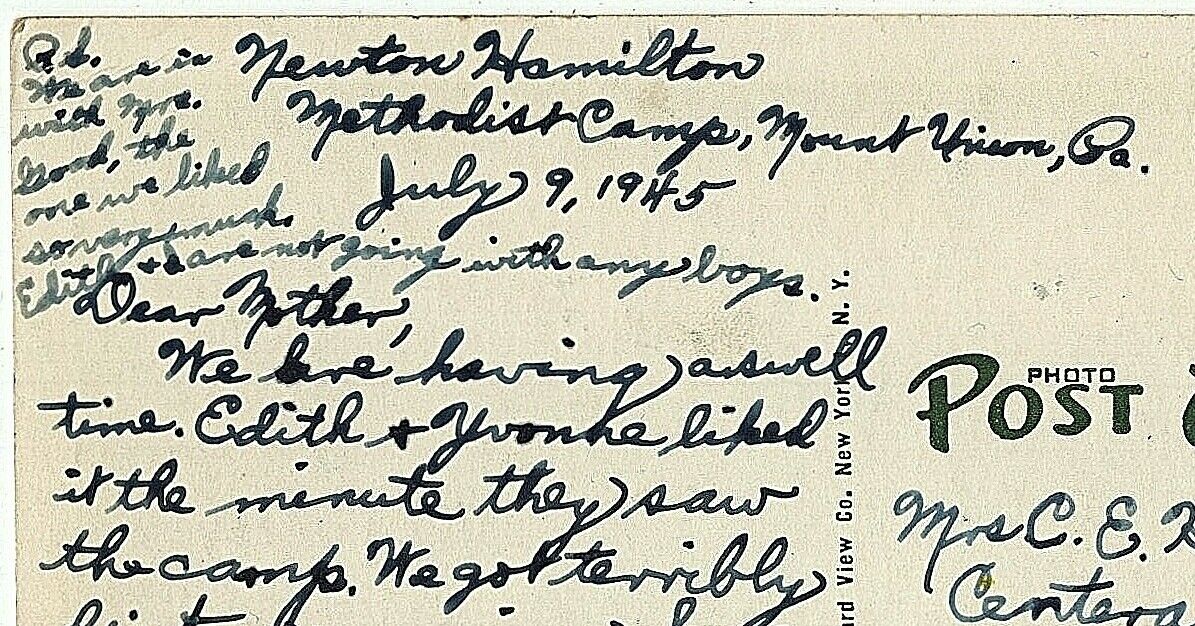 P.S.
We are in
with Mrs.
Good, the
one we liked
so very much.
Edith & I are not going with any boys.
Newton Hamilton
Methodist Camp, Mount Union, Pa.
July 9, 1945
Dear Mother,
We are having a swell
time. Edith & Yvonne liked
it the minute they saw
the camp. We got terribly
ard View Co. New York N. Y.
PHOTO
POST
Mrs C. E.